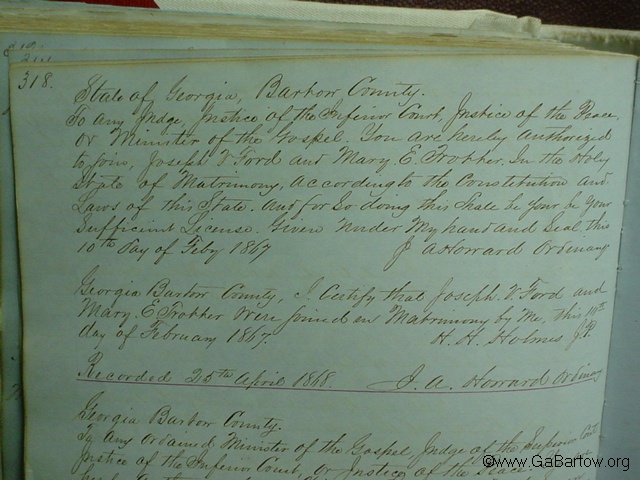 318.
State of Georgia, Bartow County.
To any Judge, Justice of the Inferior Court, Justice of the Peace,
or Minister of the Gospel. You are hereby authorized
to Join, Joseph V. Ford and Mary E. Trotter. In the Holy
State of Matrimony, According to the Constitution and
Laws of this State. And for So doing this Shall be your be your
Sufficient License. Given Under My hand and Seal this
10th Day of Feby 1867 J A Howard Ordinary
Georgia Bartow County, I Certify that Joseph. V. Ford and
Mary. E Trotter Were joined in Matrimony by Me, this
day of February 1867. H. H. Holmes J.P.
Recorded 25th April 1868. J. A. Howard Ordinary
Georgia Bartow County.
To any Ordained Minister of the Gospel, Judge of the Superior
Justice of the Inferior Court, or Justice of the Peace.
©www.GaBartow.org